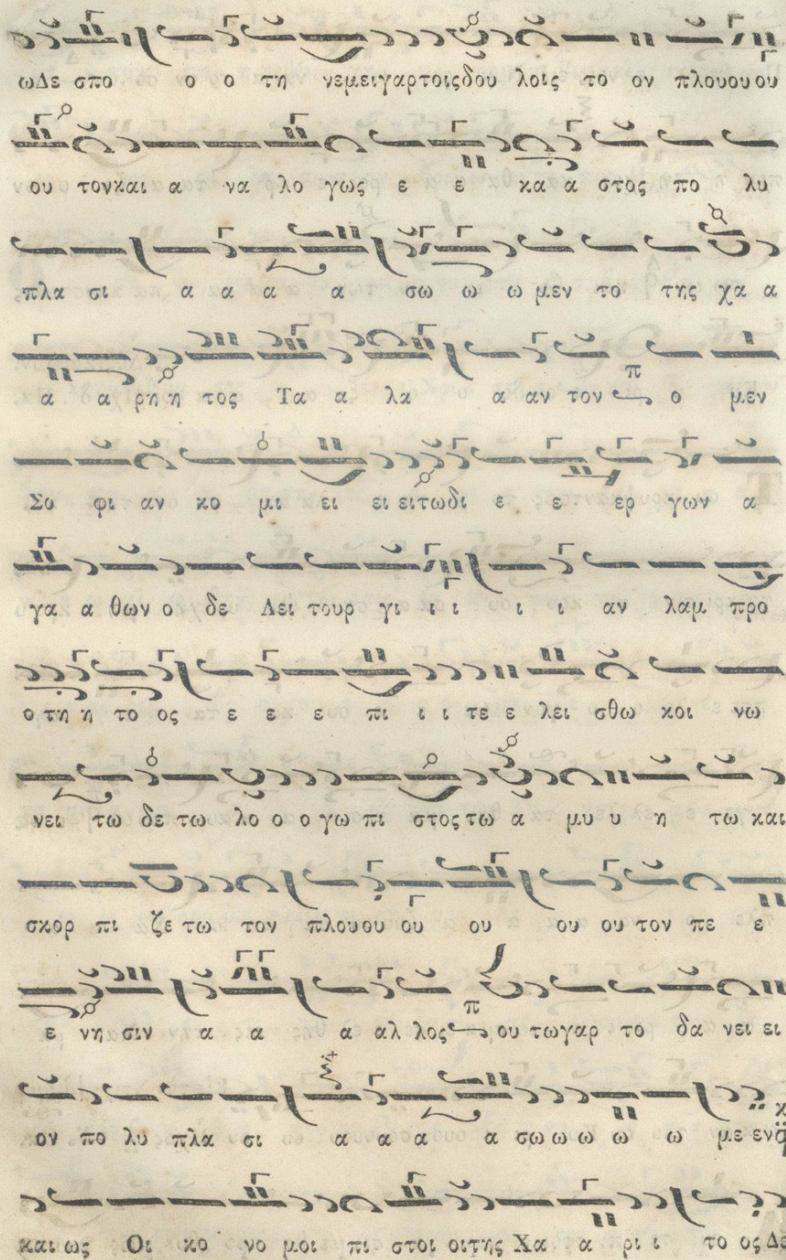 ωΔε σπο ο ο τη νεμειγαρτοιςδου λοις το ον πλουουου
ου τονκαι α να λο γως ε ε κα α στος πο λυ
πλα σι α α α α σω ω ω μεν το της χα α
α α ρη η τος Τα α λα α αν τον π ο μεν
Σο φι αν κο μι ει ει ειτωδι ε ε ερ γων α
γα α θων ο δε Λει τουρ γι ι ι ι ι αν λαμ προ
ο τη η το ος ε ε ε πι ι ι τε ε λει σθω κοι νω
νει τω δε τω λο ο ο γω πι στος τω α μυ υ η τω και
σκορ πι ζε τω τον πλουου ου ου ου ου τον πε ε
ε νη σιν α α α αλ λος π ου τωγαρ το δα νει ει
ον πο λυ πλα σι α α α α σω ω ω ω ω με εν
και ως Οι κο νο μοι πι στοι οιτης Χα α ρι ι το ος Δε